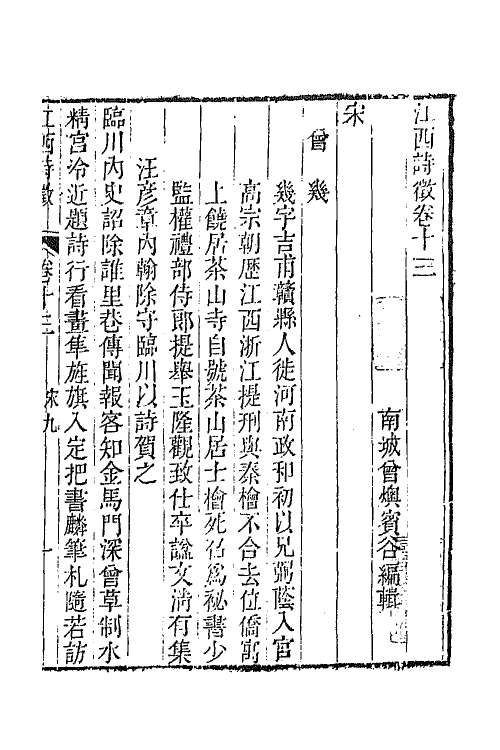 江西詩徵卷十三
南城曾燠賓谷編輯
宋
曾幾
幾字吉甫贛縣人徙河南政和初以兄弼蔭入官
高宗朝歷江西浙江提刑與秦檜不合去位僑寓
上饒居茶山寺自號茶山居士檜死召爲祕書少
監權禮部侍郎提舉玉隆觀致仕卒諡文淸有集
汪彥章內翰除守臨川以詩賀之
臨川內史詔除誰里巷傳聞報客知金馬門深曾草制水
精宮冷近題詩行看畫隼旌旗入定把書麟筆札隨若訪
江西詩徵 卷十三 宋九 一